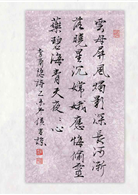 雲母屏風燭影深長河漸
落曉星沉嫦娥應悔偷靈
藥碧海青天夜々心
李商隱詩